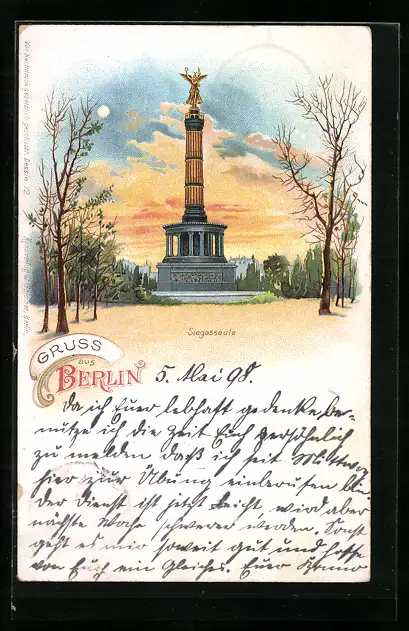 Siegessäule
GRUSS
aus
BERLIN 5. Mai 98.
Da ich Euer lebhaft gedenke, be-
nutze ich die Zeit Euch persöhnlich
zu melden daß ich seit Mittwoch
hier zur Übung einberufen bin.
Der Dienst ist jetzt leicht, wird aber
nächste Woche schwerer werden. Sonst
geht es mir soweit gut und hoffe
von Euch ein Gleiches. Euer